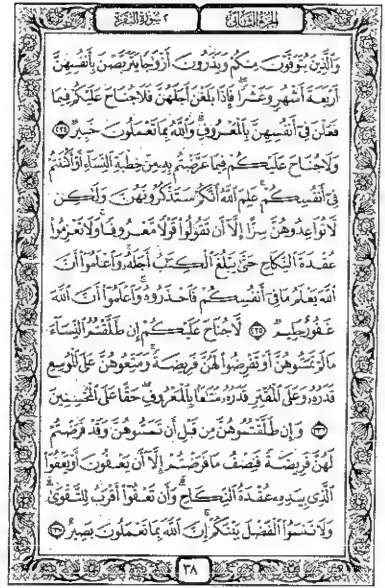 الجزء الثاني
٢ سورة البقرة
وَالَّذِينَ يُتَوَفَّوْنَ مِنكُمْ وَيَذَرُونَ أَزْوَاجًا يَتَرَبَّصْنَ بِأَنفُسِهِنَّ
أَرْبَعَةَ أَشْهُرٍ وَعَشْرًا فَإِذَا بَلَغْنَ أَجَلَهُنَّ فَلَا جُنَاحَ عَلَيْكُمْ فِيمَا
فَعَلْنَ فِي أَنفُسِهِنَّ بِالْمَعْرُوفِ وَاللَّهُ بِمَا تَعْمَلُونَ خَبِيرٌ ٢٣٤
وَلَا جُنَاحَ عَلَيْكُمْ فِيمَا عَرَّضْتُم بِهِ مِنْ خِطْبَةِ النِّسَاءِ أَوْ أَكْنَنتُمْ
فِي أَنفُسِكُمْ عَلِمَ اللَّهُ أَنَّكُمْ سَتَذْكُرُونَهُنَّ وَلَكِن
لَّا تُوَاعِدُوهُنَّ سِرًّا إِلَّا أَن تَقُولُوا قَوْلًا مَّعْرُوفًا وَلَا تَعْزِمُوا
عُقْدَةَ النِّكَاحِ حَتَّى يَبْلُغَ الْكِتَابُ أَجَلَهُ وَاعْلَمُوا أَنَّ
اللَّهَ يَعْلَمُ مَا فِي أَنفُسِكُمْ فَاحْذَرُوهُ وَاعْلَمُوا أَنَّ اللَّهَ
غَفُورٌ حَلِيمٌ ٢٣٥ لَّا جُنَاحَ عَلَيْكُمْ إِن طَلَّقْتُمُ النِّسَاءَ
مَا لَمْ تَمَسُّوهُنَّ أَوْ تَفْرِضُوا لَهُنَّ فَرِيضَةً وَمَتِّعُوهُنَّ عَلَى الْمُوسِعِ
قَدَرُهُ وَعَلَى الْمُقْتِرِ قَدَرُهُ مَتَاعًا بِالْمَعْرُوفِ حَقًّا عَلَى الْمُحْسِنِينَ
٢٣٦ وَإِن طَلَّقْتُمُوهُنَّ مِن قَبْلِ أَن تَمَسُّوهُنَّ وَقَدْ فَرَضْتُمْ
لَهُنَّ فَرِيضَةً فَنِصْفُ مَا فَرَضْتُمْ إِلَّا أَن يَعْفُونَ أَوْ يَعْفُوَا
الَّذِي بِيَدِهِ عُقْدَةُ النِّكَاحِ وَأَن تَعْفُوا أَقْرَبُ لِلتَّقْوَى
وَلَا تَنسَوُا الْفَضْلَ بَيْنَكُمْ إِنَّ اللَّهَ بِمَا تَعْمَلُونَ بَصِيرٌ ٢٣٧
٣٨